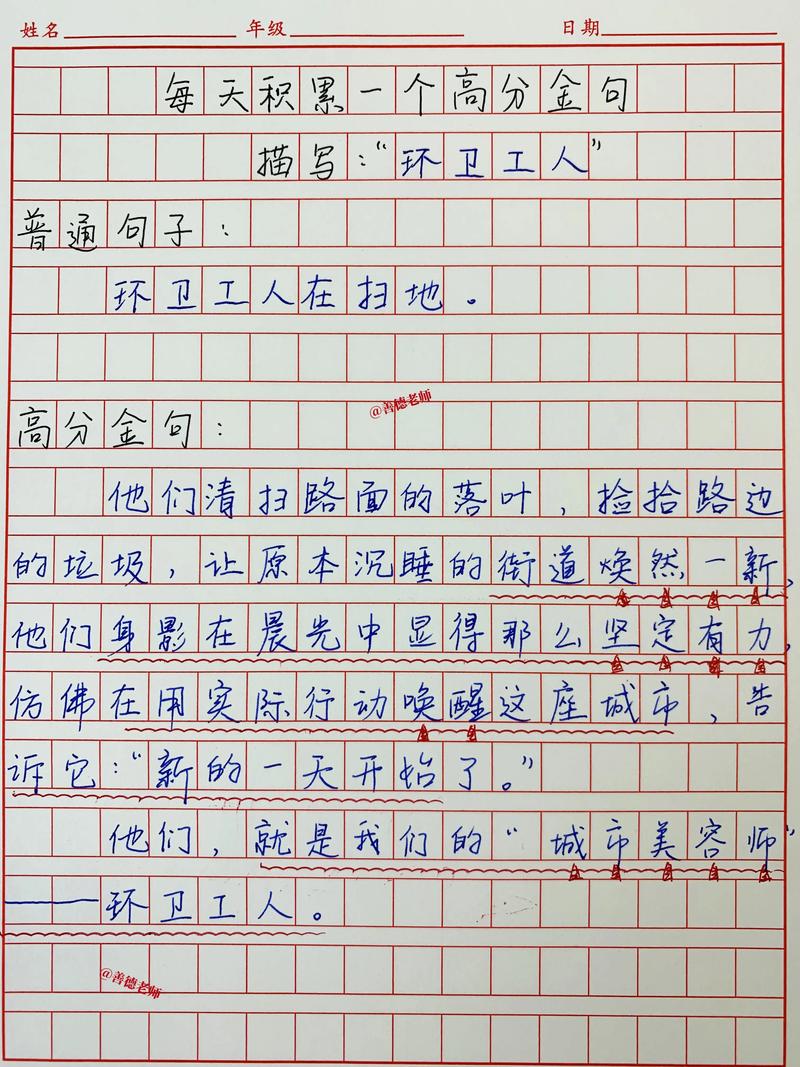 姓名 年级 日期
每天积累一个高分金句
描写:“环卫工人”
普通句子:
环卫工人在扫地。
@善德老师
高分金句:
他们清扫路面的落叶,捡拾路边
的垃圾,让原本沉睡的街道焕然一新,
他们身影在晨光中显得那么坚定有力,
仿佛在用实际行动唤醒这座城市,告
诉它:“新的一天开始了。”
他们,就是我们的“城市美容师”
——环卫工人。
@善德老师